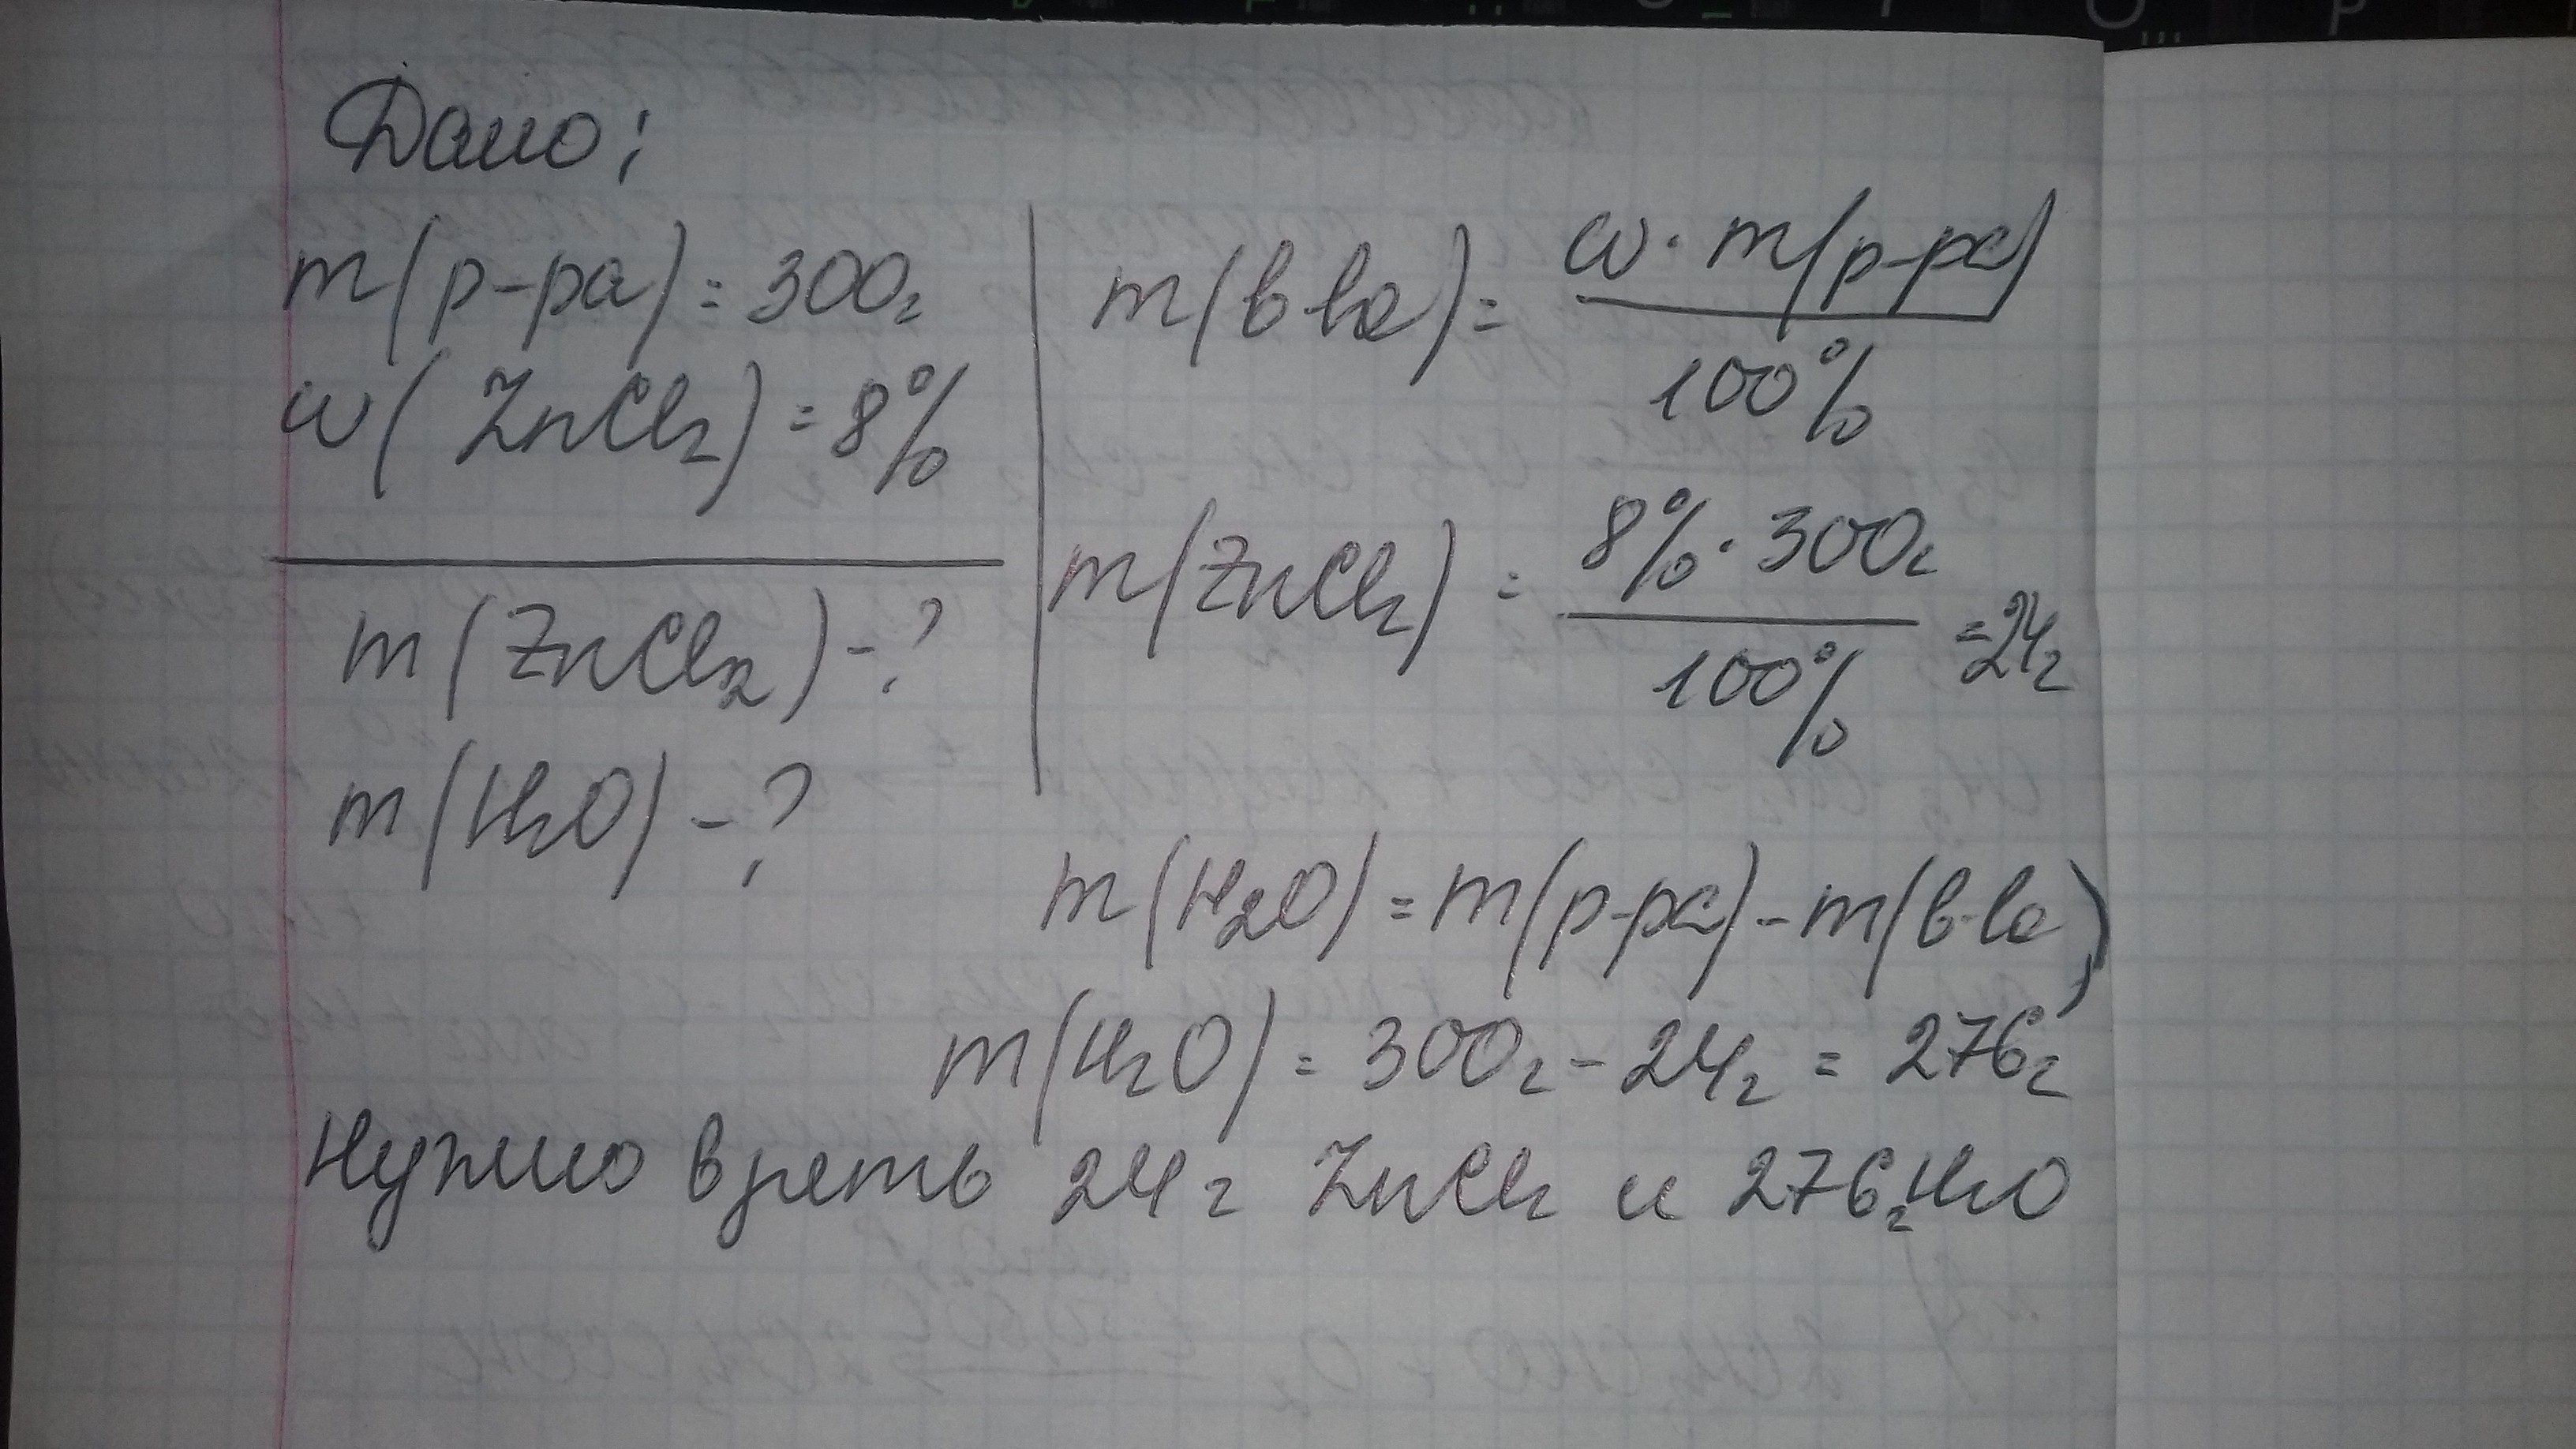 Дано:
m(р-ра) = 300г
w(ZnCl₂) = 8%
m(ZnCl₂) - ?
m(H₂O) - ?
m(в-ва) = w · m(р-ра) / 100%
m(ZnCl₂) = 8% · 300г / 100% = 24г
m(H₂O) = m(р-ра) - m(в-ва)
m(H₂O) = 300г - 24г = 276г
Нужно взять 24г ZnCl₂ и 276г H₂O